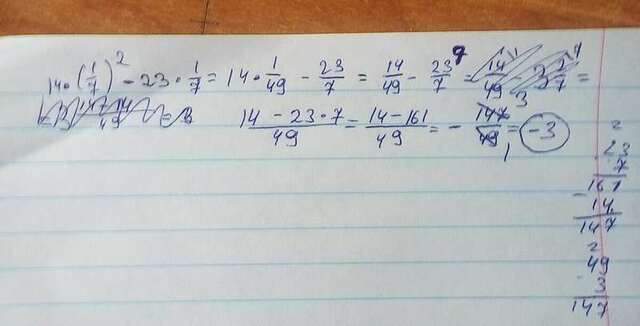 14·(1/7)² - 23·1/7 = 14·1/49 - 23/7 = 14/49 - 23/7 = 14/49 =
(14 - 23·7)/49 = (14-161)/49 = - 147/49 = -3
2
23
7
161
- 14
147
2
49
3
147